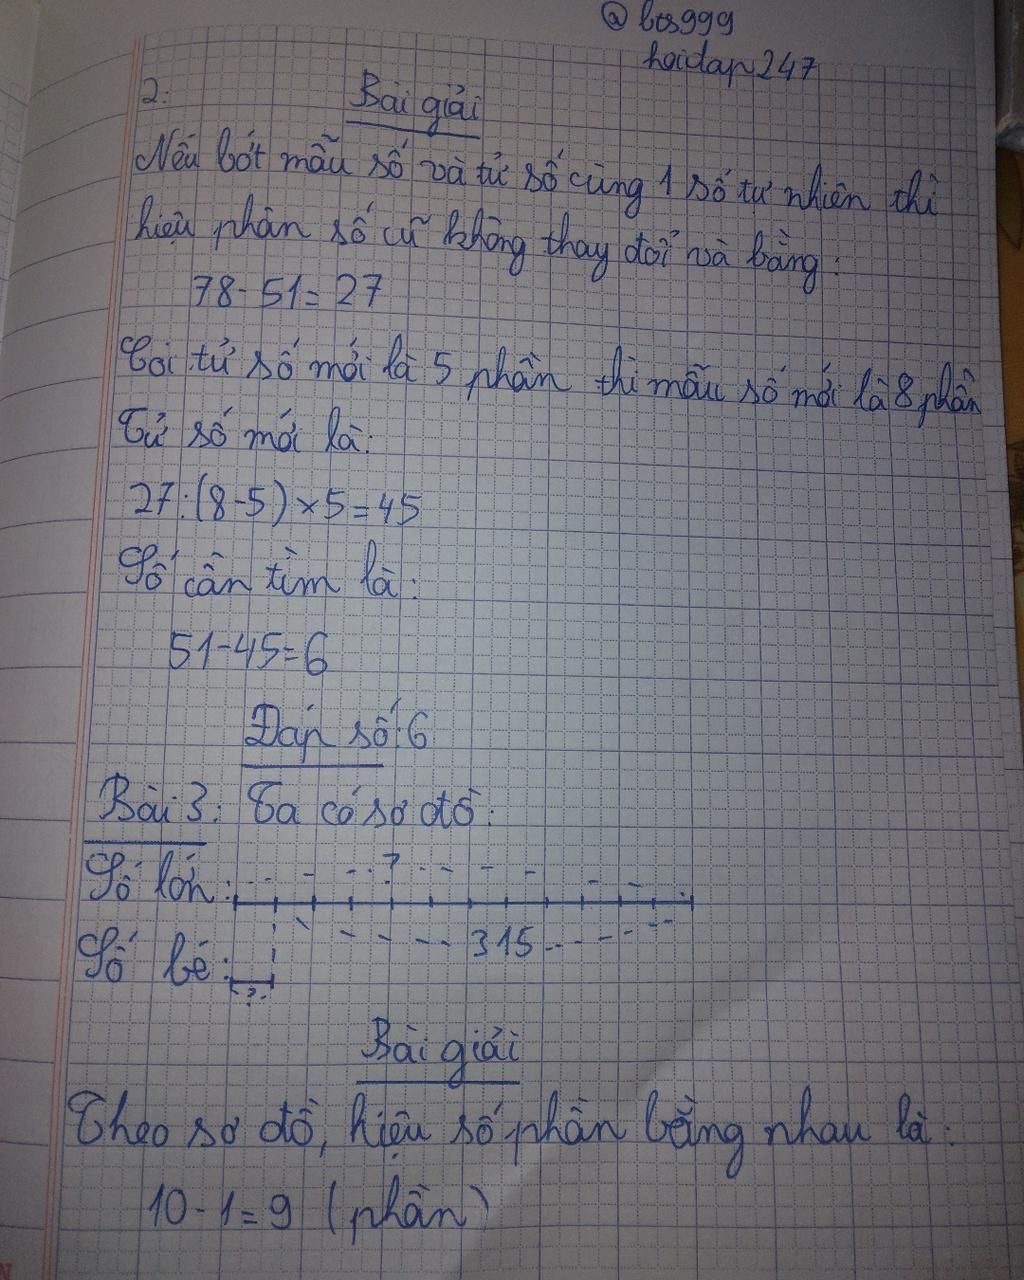 @ bts999
hoidap247
2:
Bài giải
Nếu bớt mẫu số và tử số cùng 1 số tự nhiên thì
hiệu phân số cũ không thay đổi và bằng:
78 - 51 = 27
Coi tử số mới là 5 phần thì mẫu số mới là 8 phần
Tử số mới là:
27:(8-5)×5=45
Số cần tìm là:
51-45=6
Đáp số: 6
Bài 3: Ta có sơ đồ:
Số lớn: ?
315
Số bé:
?
Bài giải
Theo sơ đồ, hiệu số phần bằng nhau là:
10-1=9 (phần)